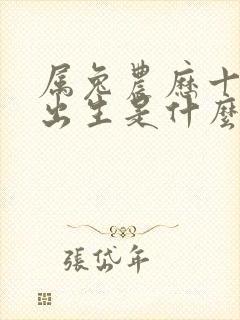 属兔農歷十
出生是什麼
張岱年